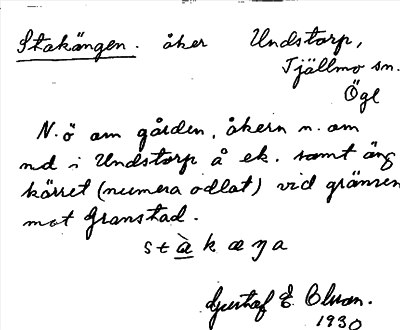 Stakängen. åker Undstorp,
Tjällmo sn.
Ögl
N.ö om gården, åkern n. om
nd i Undstorp å ek. samt äng
kärret (numera odlat) vid gränsen
mot Granstad.
st à k æ ŋ a
Gustaf E. Olson.
1930